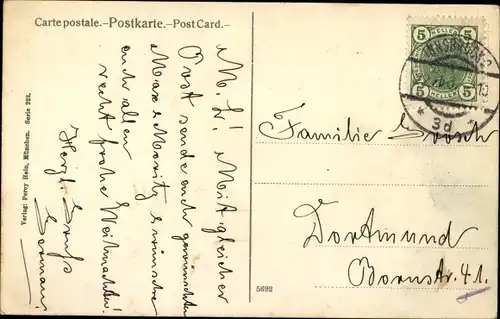 Carte postale.–Postkarte.–Post Card.–
M. L.! Mit gleicher
Post sende euch gewünschte
Max & Moritz & wünsche
euch allen
recht frohe Weihnachten!
Herzl. Gruß
Verlag: Percy Hein, München. Serie 222.
5692
HELLER
5 5
5 5
INNSBRUCK 2
3d
Familie Grosch
Dortmund
Bornstr. 41.